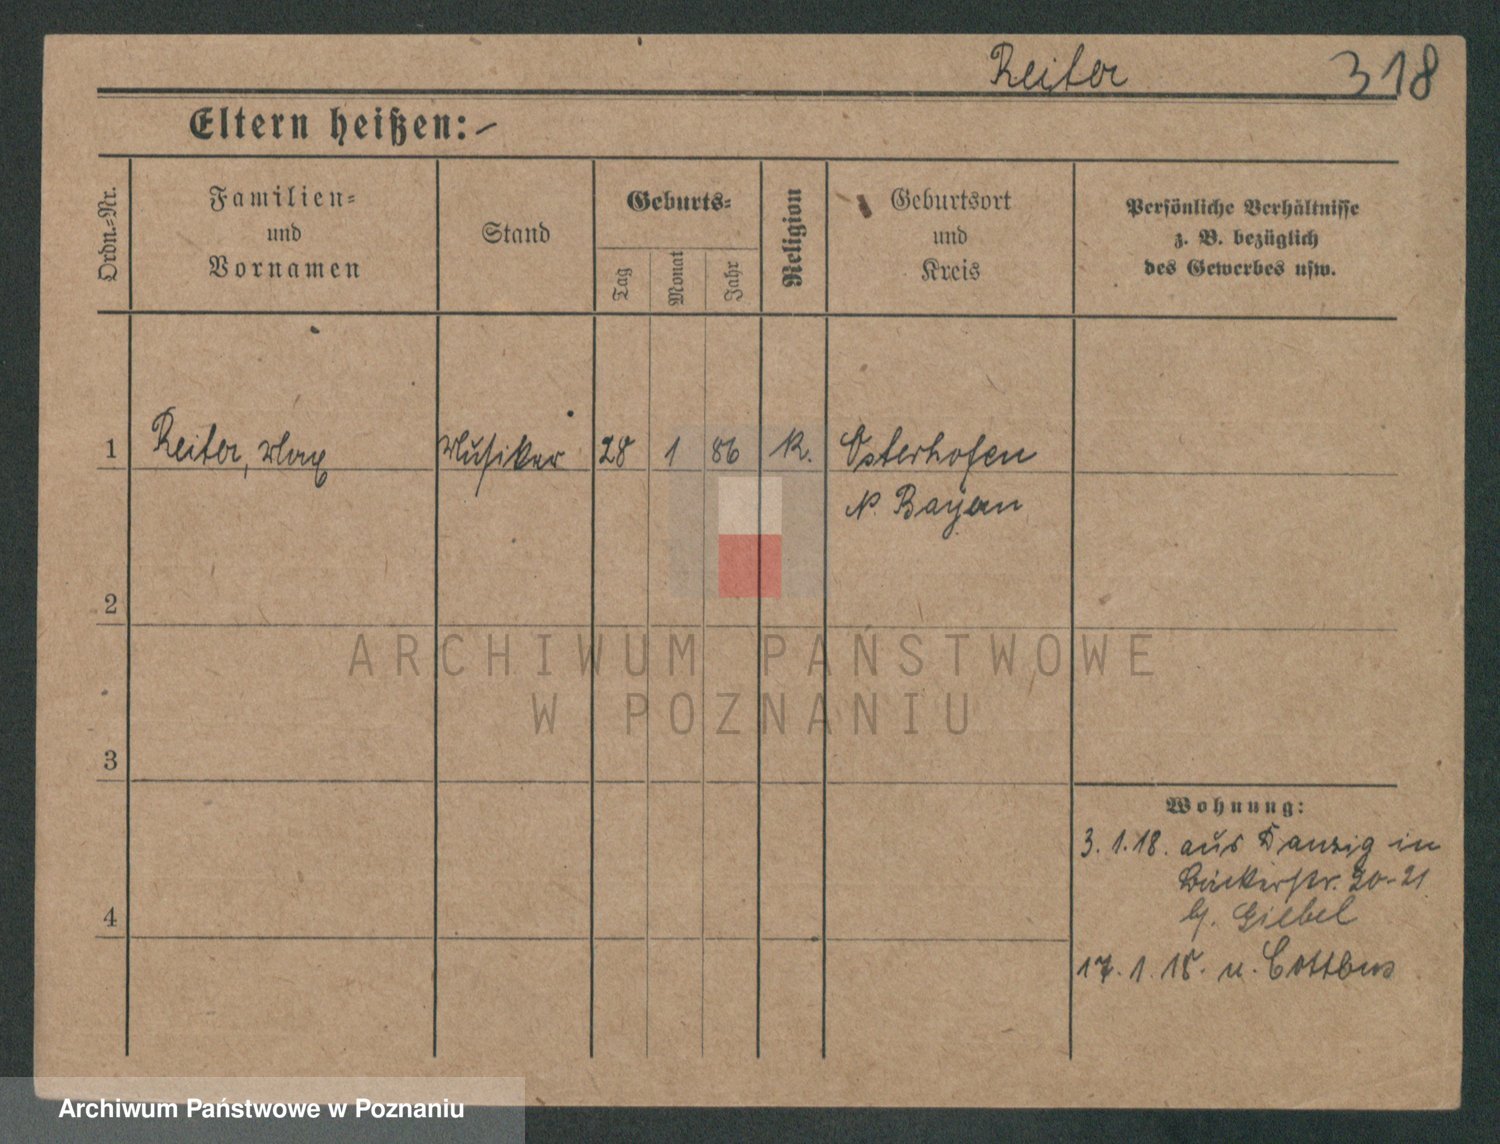 Reiter 318
Eltern heißen: -
Ordn.-Nr.
Familien-
und
Vornamen
Stand
Geburts-
Tag
Monat
Jahr
Religion
Geburtsort
und
Kreis
Persönliche Verhältnisse
z. B. bezüglich
des Gewerbes usw.
1 Reiter, Max Musiker 28 1 86 K. Osterhofen
N. Bayern
2
ARCHIWUM PAŃSTWOWE
W POZNANIU
3
Wohnung:
3. 1. 18. aus Danzig in
Bäckerstr. 20-21
b/. Giebel
4
17. 1. 18. n. Cottbus
Archiwum Państwowe w Poznaniu